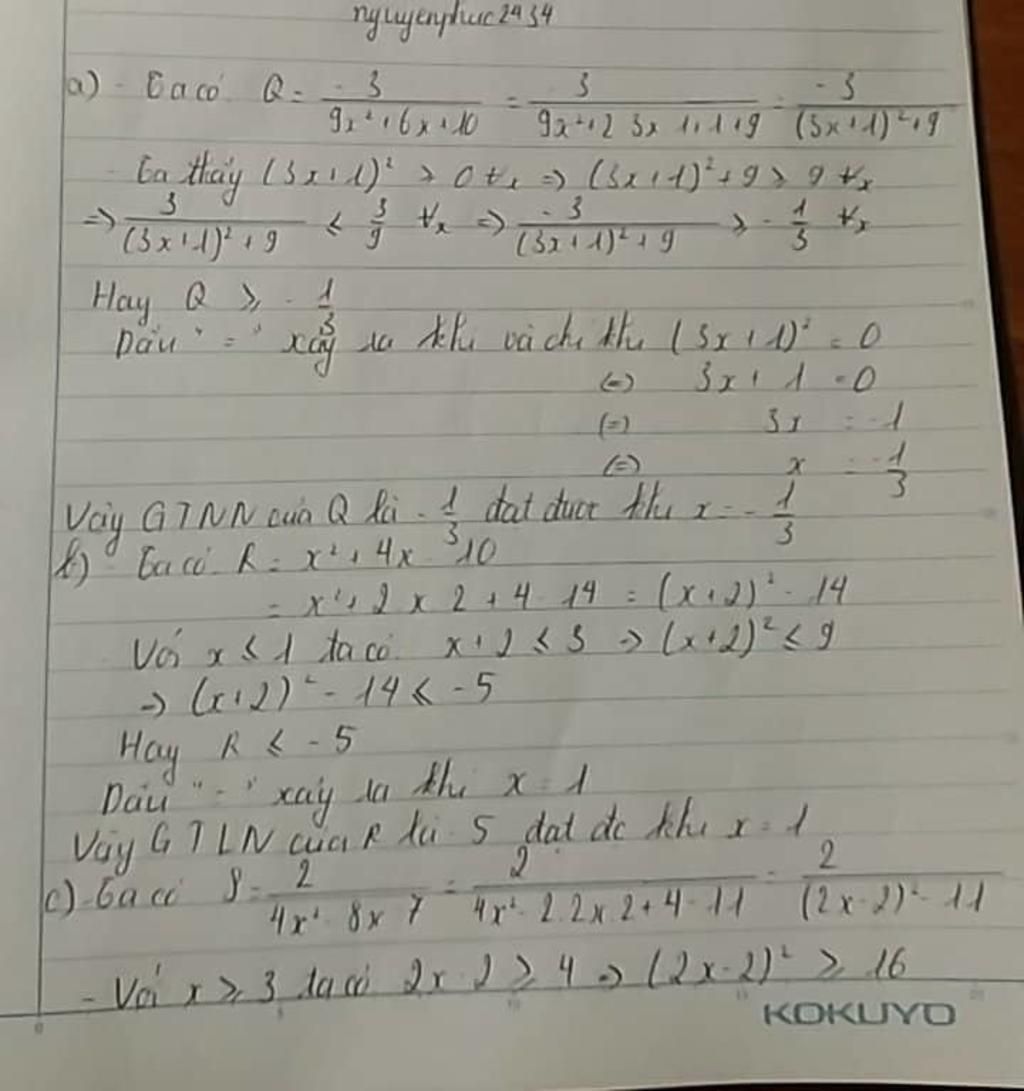 nguyenphuc2434
a) - Ta có Q = -3/(9x²+6x+10) = -3/(9x²+2.3x.1+1+9) = -3/((3x+1)²+9)
- Ta thấy (3x+1)² ≥ 0 ∀x => (3x+1)²+9 ≥ 9 ∀x
=> 3/((3x+1)²+9) ≤ 3/9 ∀x => -3/((3x+1)²+9) ≥ -1/3 ∀x
Hay Q ≥ -1/3
Dấu "=" xảy ra khi và chỉ khi (3x+1)² = 0
(=) 3x+1 = 0
(=) 3x = -1
(=) x = -1/3
Vậy GTNN của Q là -1/3 đạt được khi x = -1/3
b) - Ta có R = x²+4x-10
= x²+2.x.2+4-14 = (x+2)²-14
Với x ≤ 1 ta có x+2 ≤ 3 => (x+2)² ≤ 9
=> (x+2)²-14 ≤ -5
Hay R ≤ -5
Dấu "=" xảy ra khi x = 1
Vậy GTLN của R là -5 đạt đc khi x = 1
c) - Ta có S = 2/(4x²-8x-7) = 2/(4x²-2.2x.2+4-11) = 2/((2x-2)²-11)
- Với x ≥ 3 ta có 2x-2 ≥ 4 => (2x-2)² ≥ 16
KOKUYO